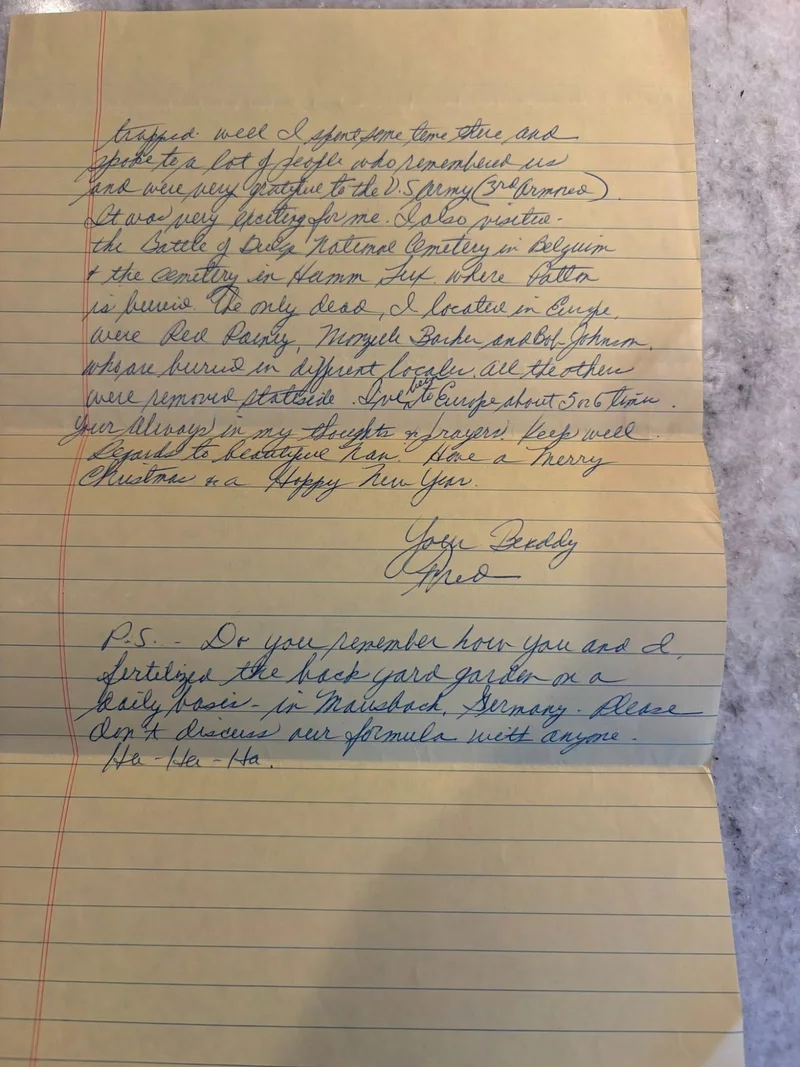 trapped. well I spent some time there and
spoke to a lot of people who remembered us
and were very grateful to the U.S Army (3rd Armored).
It was very exciting for me. I also visited
the Battle of Bulge National Cemetery in Belguim
+ the cemetery in Hamm Lux. where Patton
is buried. The only dead, I located in Europe,
were Red Rainey, Barker and Bob Johnson,
who are buried in different locales. All the others
were removed stateside. I've been to Europe about 5 or 6 times.
Your always in my thoughts & prayers. Keep well.
Regards to beautiful Nan. Have a Merry
Christmas & a Happy New Year.
Your Buddy
Fred
P.S. - Do you remember how you and I,
fertilized the back yard garden on a
daily basis - in Mausbach, Germany. Please
don't discuss our formula with anyone.
Ha - Ha - Ha.